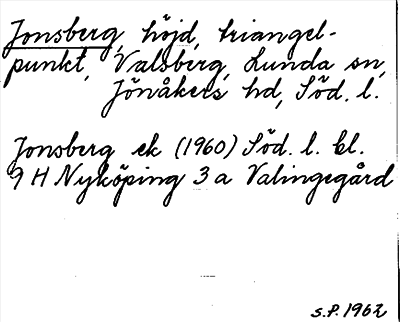 Jonsberg, höjd, triangel-
punkt, Valsberg, Lunda sn,
Jönåkers hd, Söd. l.
Jonsberg ek (1960) Söd. l. bl.
9 H Nyköping 3 a Valingegård
S.P. 1962